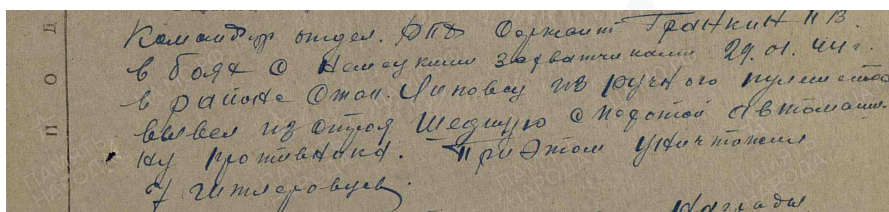 Командир отдел. ДПД Сержант Гранкин П В.
в боях с немецкими захватчиками 29.01.44 г.
в районе стан. Липовец из ручного пулемета
вывел из строя шедшую с пехотой автомаши
ну противника. При этом уничтожил
7 гитлеровцев.
Награды
П О Д